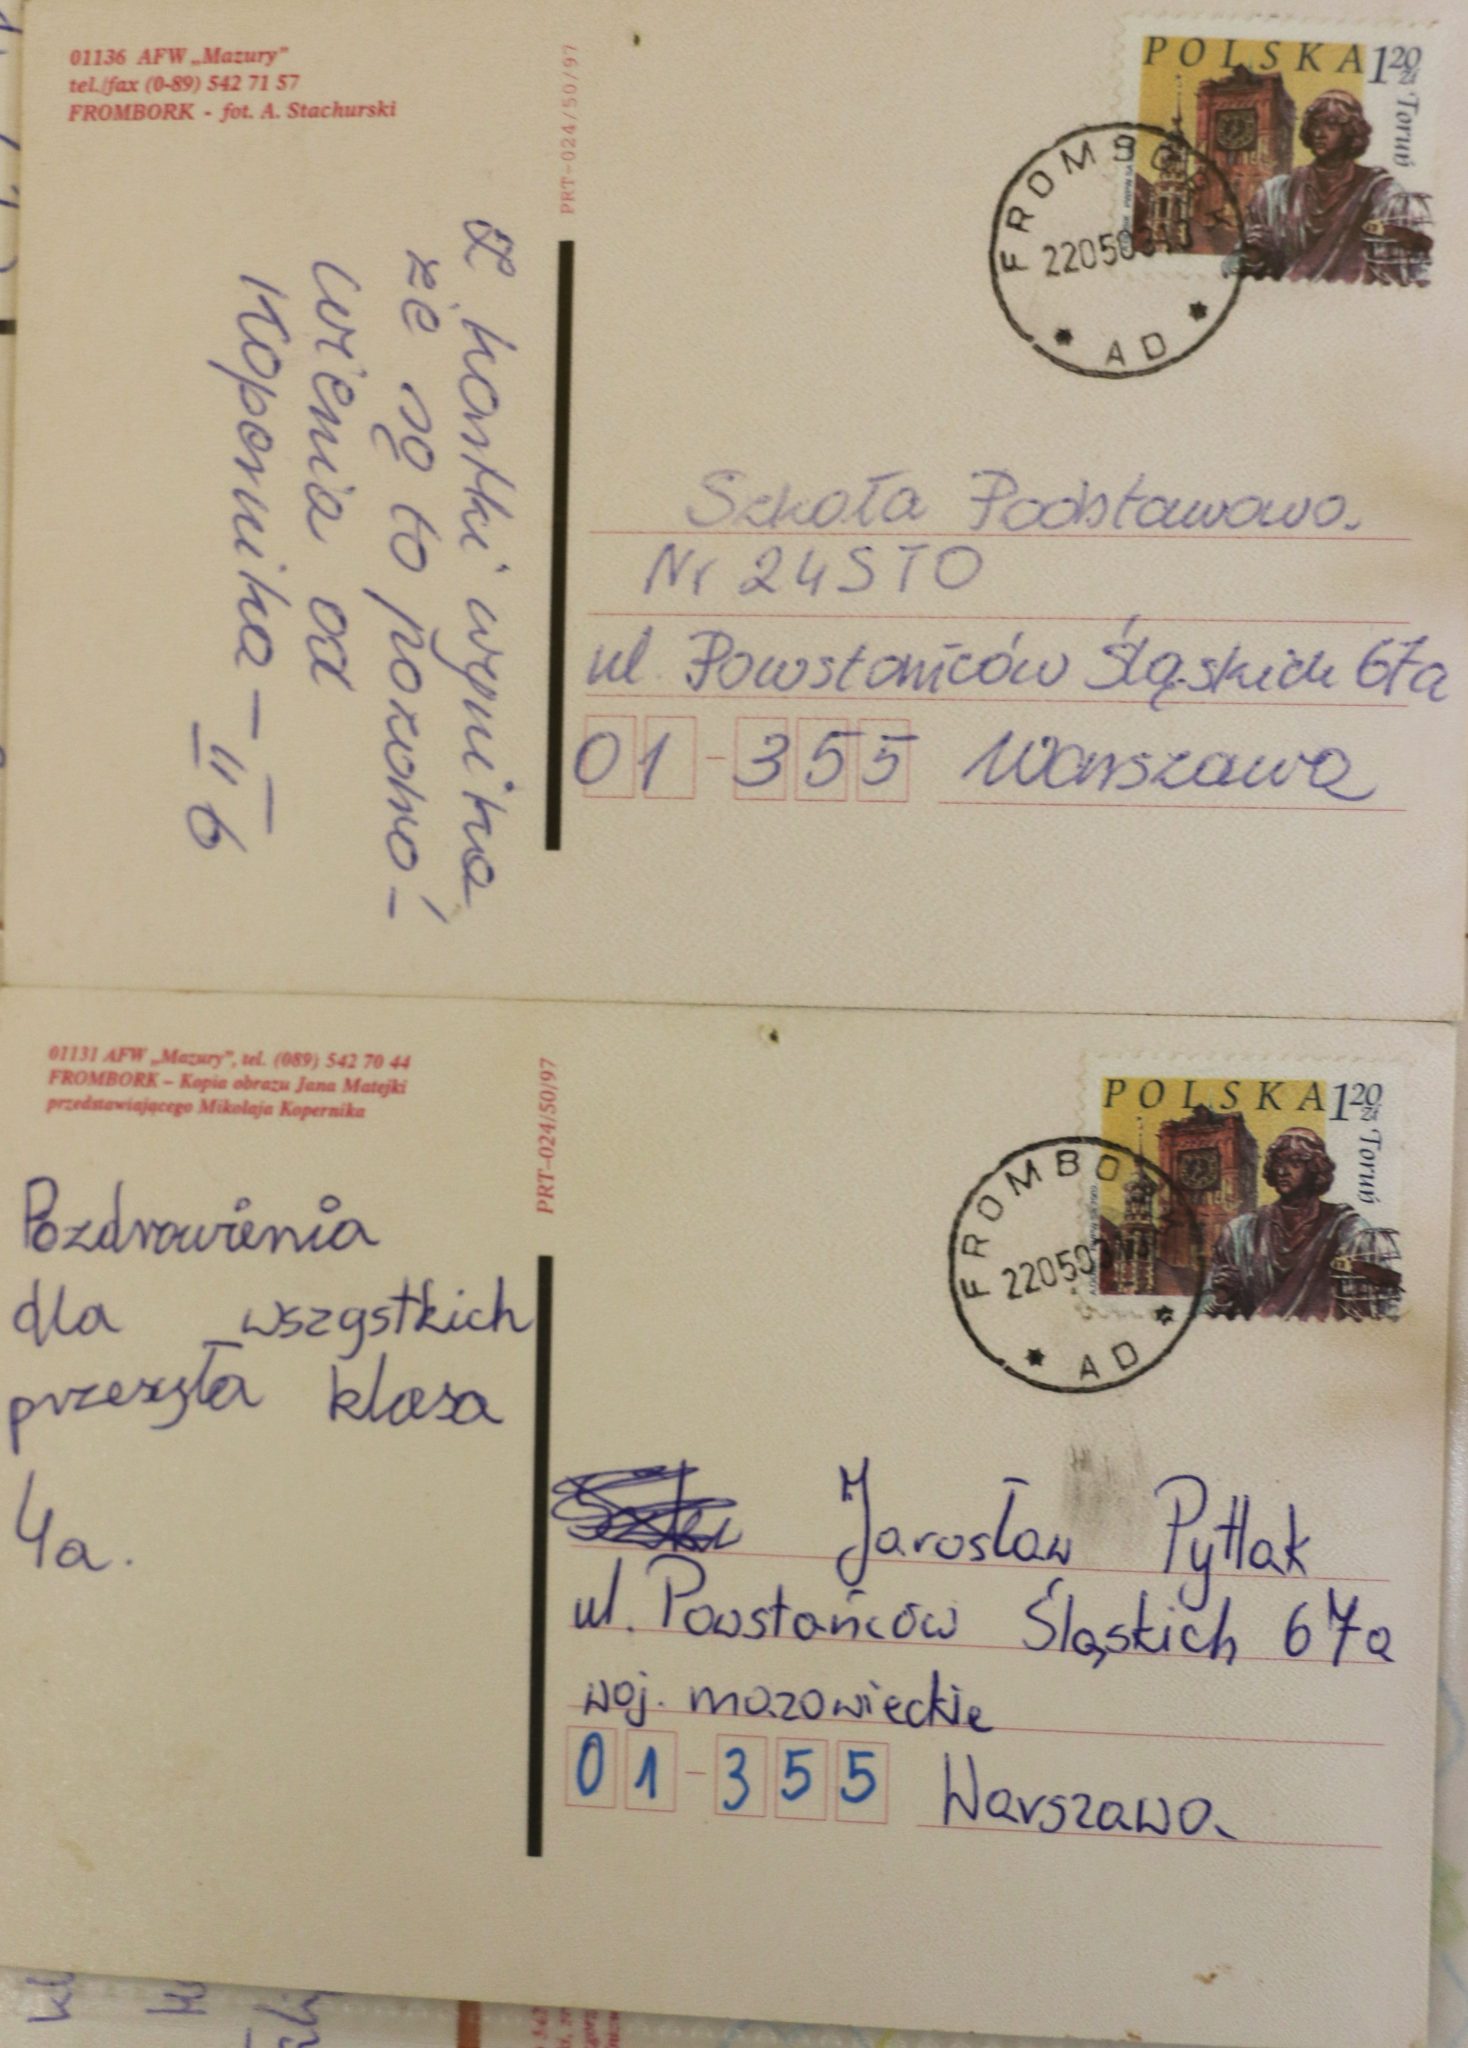 01136 AFW „Mazury”
tel./fax (0-89) 542 71 57
FROMBORK - fot. A. Stachurski
PRT-024/50/97
POLSKA 120 zł
Toruń
FROMBORK
220503
AD
Z kartki wynika
że są to pozdro-
wienia od
Kopernika -
II 6
Szkoła Podstawowa
Nr 24 STO
ul. Powstańców Śląskich 67a
01-355 Warszawa
01131 AFW „Mazury”, tel. (089) 542 70 44
FROMBORK – Kopia obrazu Jana Matejki
przedstawiającego Mikołaja Kopernika
PRT-024/50/97
POLSKA 120 zł
Toruń
FROMBO
220503
AD
Pozdrowienia
dla wszystkich
przesyła klasa
4a.
Jarosław Pytlak
ul. Powstańców Śląskich 67a
woj. mazowieckie
01-355 Warszawa